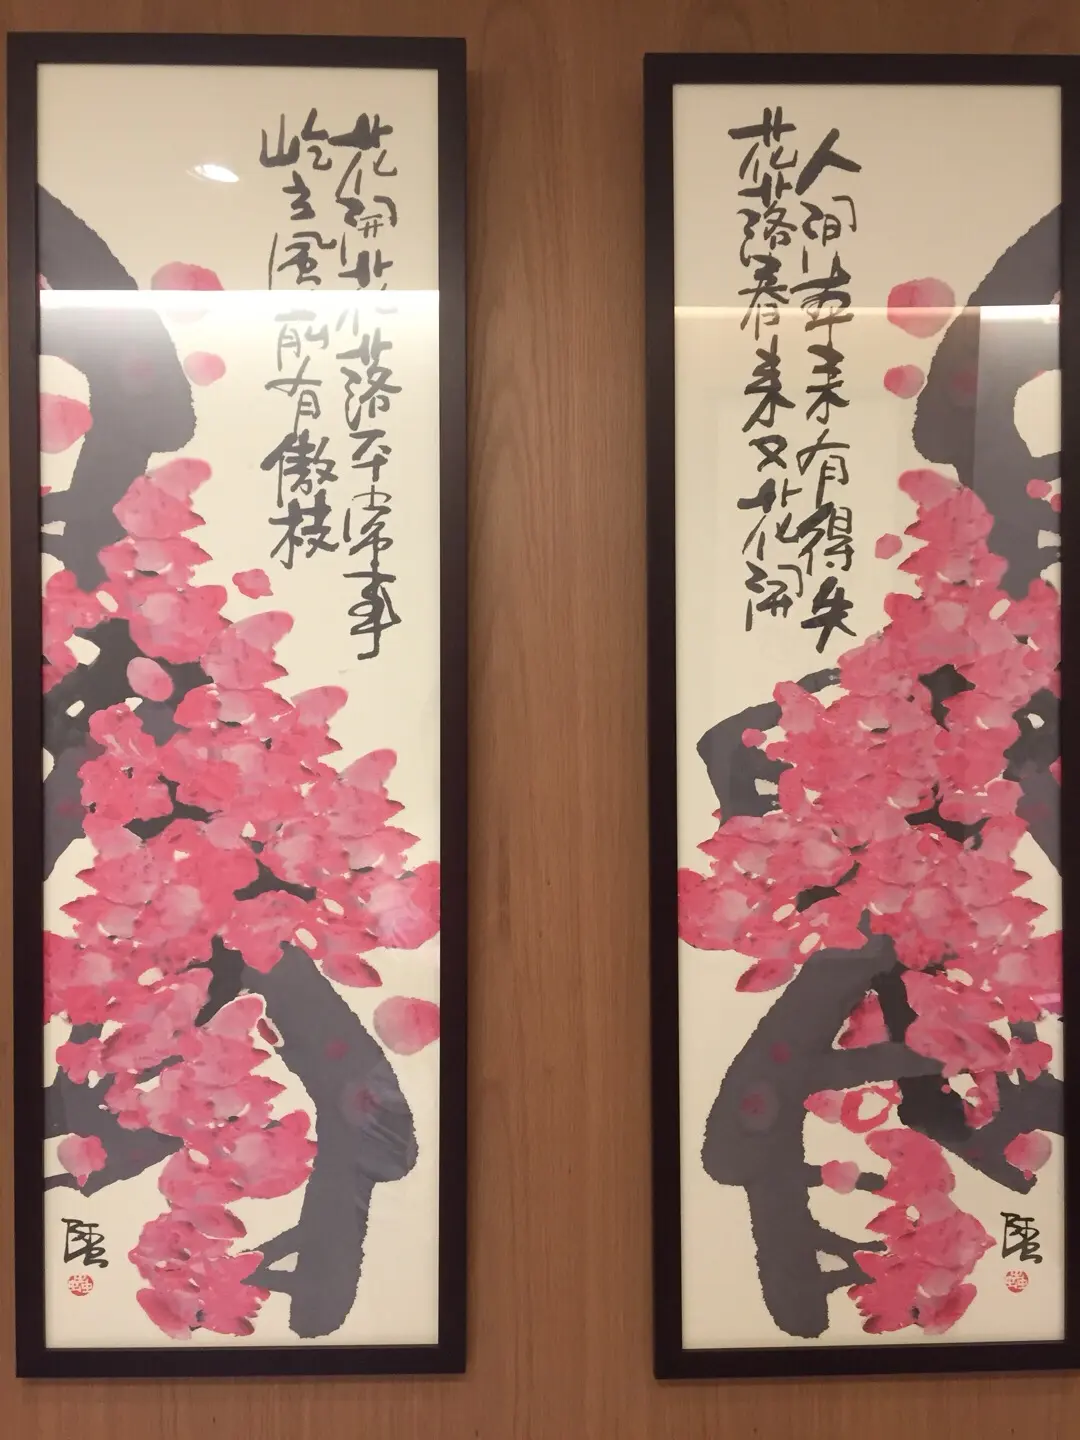 人间本来有得失
花落春来又花開
花開花落平常事
屹立風前有傲枝